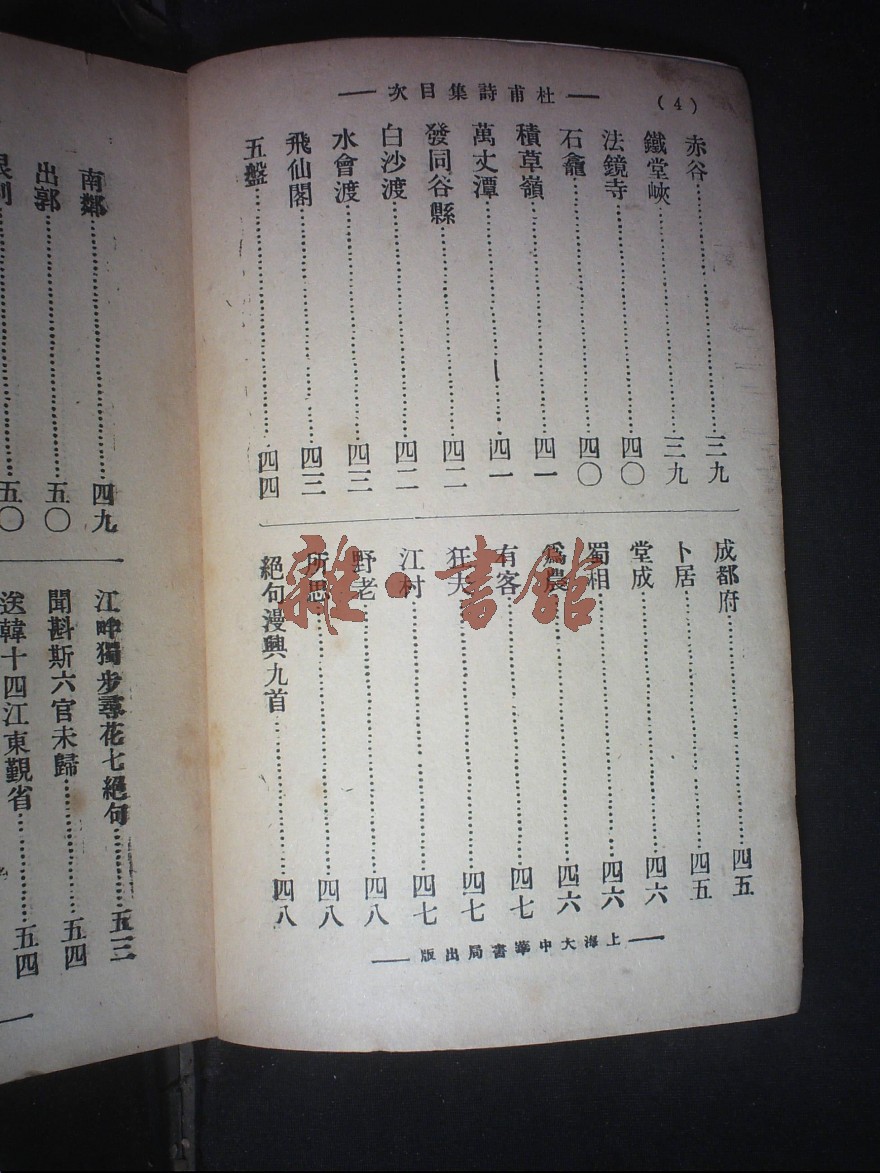 (4)
杜甫詩集目次
赤谷……三九
鐵堂峽……三九
法鏡寺……四〇
石龕……四〇
積草嶺……四一
萬丈潭……四一
發同谷縣……四二
白沙渡……四二
水會渡……四三
飛仙閣……四三
五盤……四四
成都府……四五
卜居……四五
堂成……四六
蜀相……四六
爲農……四六
有客……四七
狂夫……四七
江村……四七
野老……四八
所思……四八
絕句漫興九首……四八
上海大中華書局出版
南鄰……四九
出郭……五〇
恨別……五〇
江畔獨步尋花七絕句……五三
聞斛斯六官未歸……五四
送韓十四江東覲省……五四
雜·書館